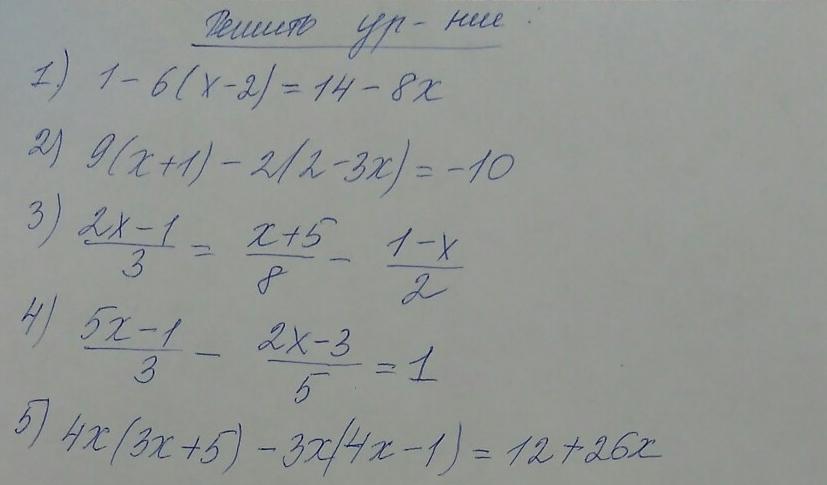 Решить ур-ние.
1) 1-6(x-2)=14-8x
2) 9(x+1)-2(2-3x)=-10
3) \frac{2x-1}{3} = \frac{x+5}{8} - \frac{1-x}{2}
4) \frac{5x-1}{3} - \frac{2x-3}{5} = 1
5) 4x(3x+5)-3x(4x-1)=12+26x